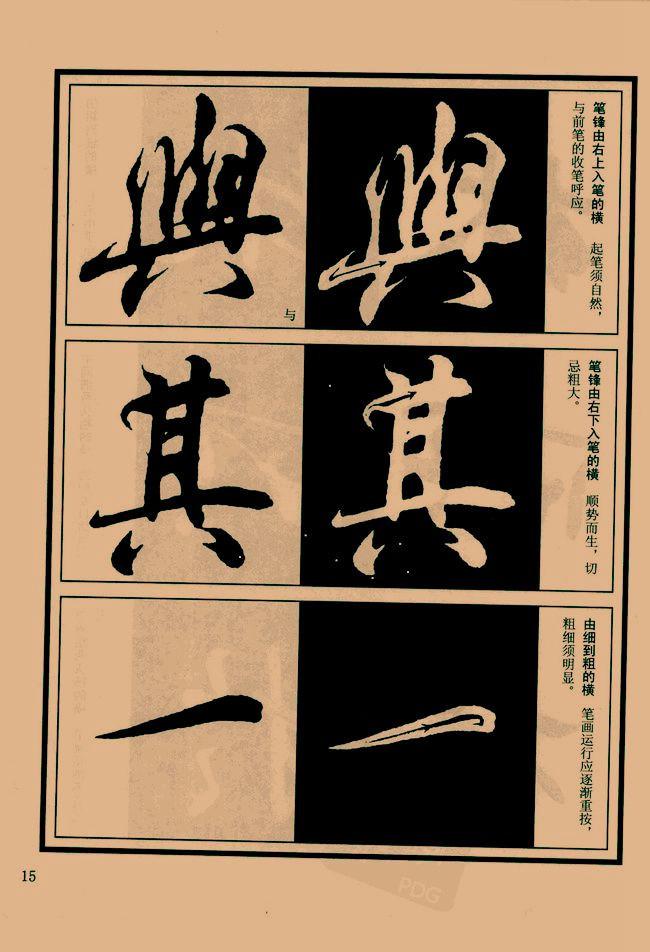 笔锋由右上入笔的横　起笔须自然，
与前笔的收笔呼应。
與
與
与
笔锋由右下入笔的横　顺势而生，切
忌粗大。
其
其
由细到粗的横　笔画运行应逐渐重按，
粗细须明显。
一
一
15
PDG